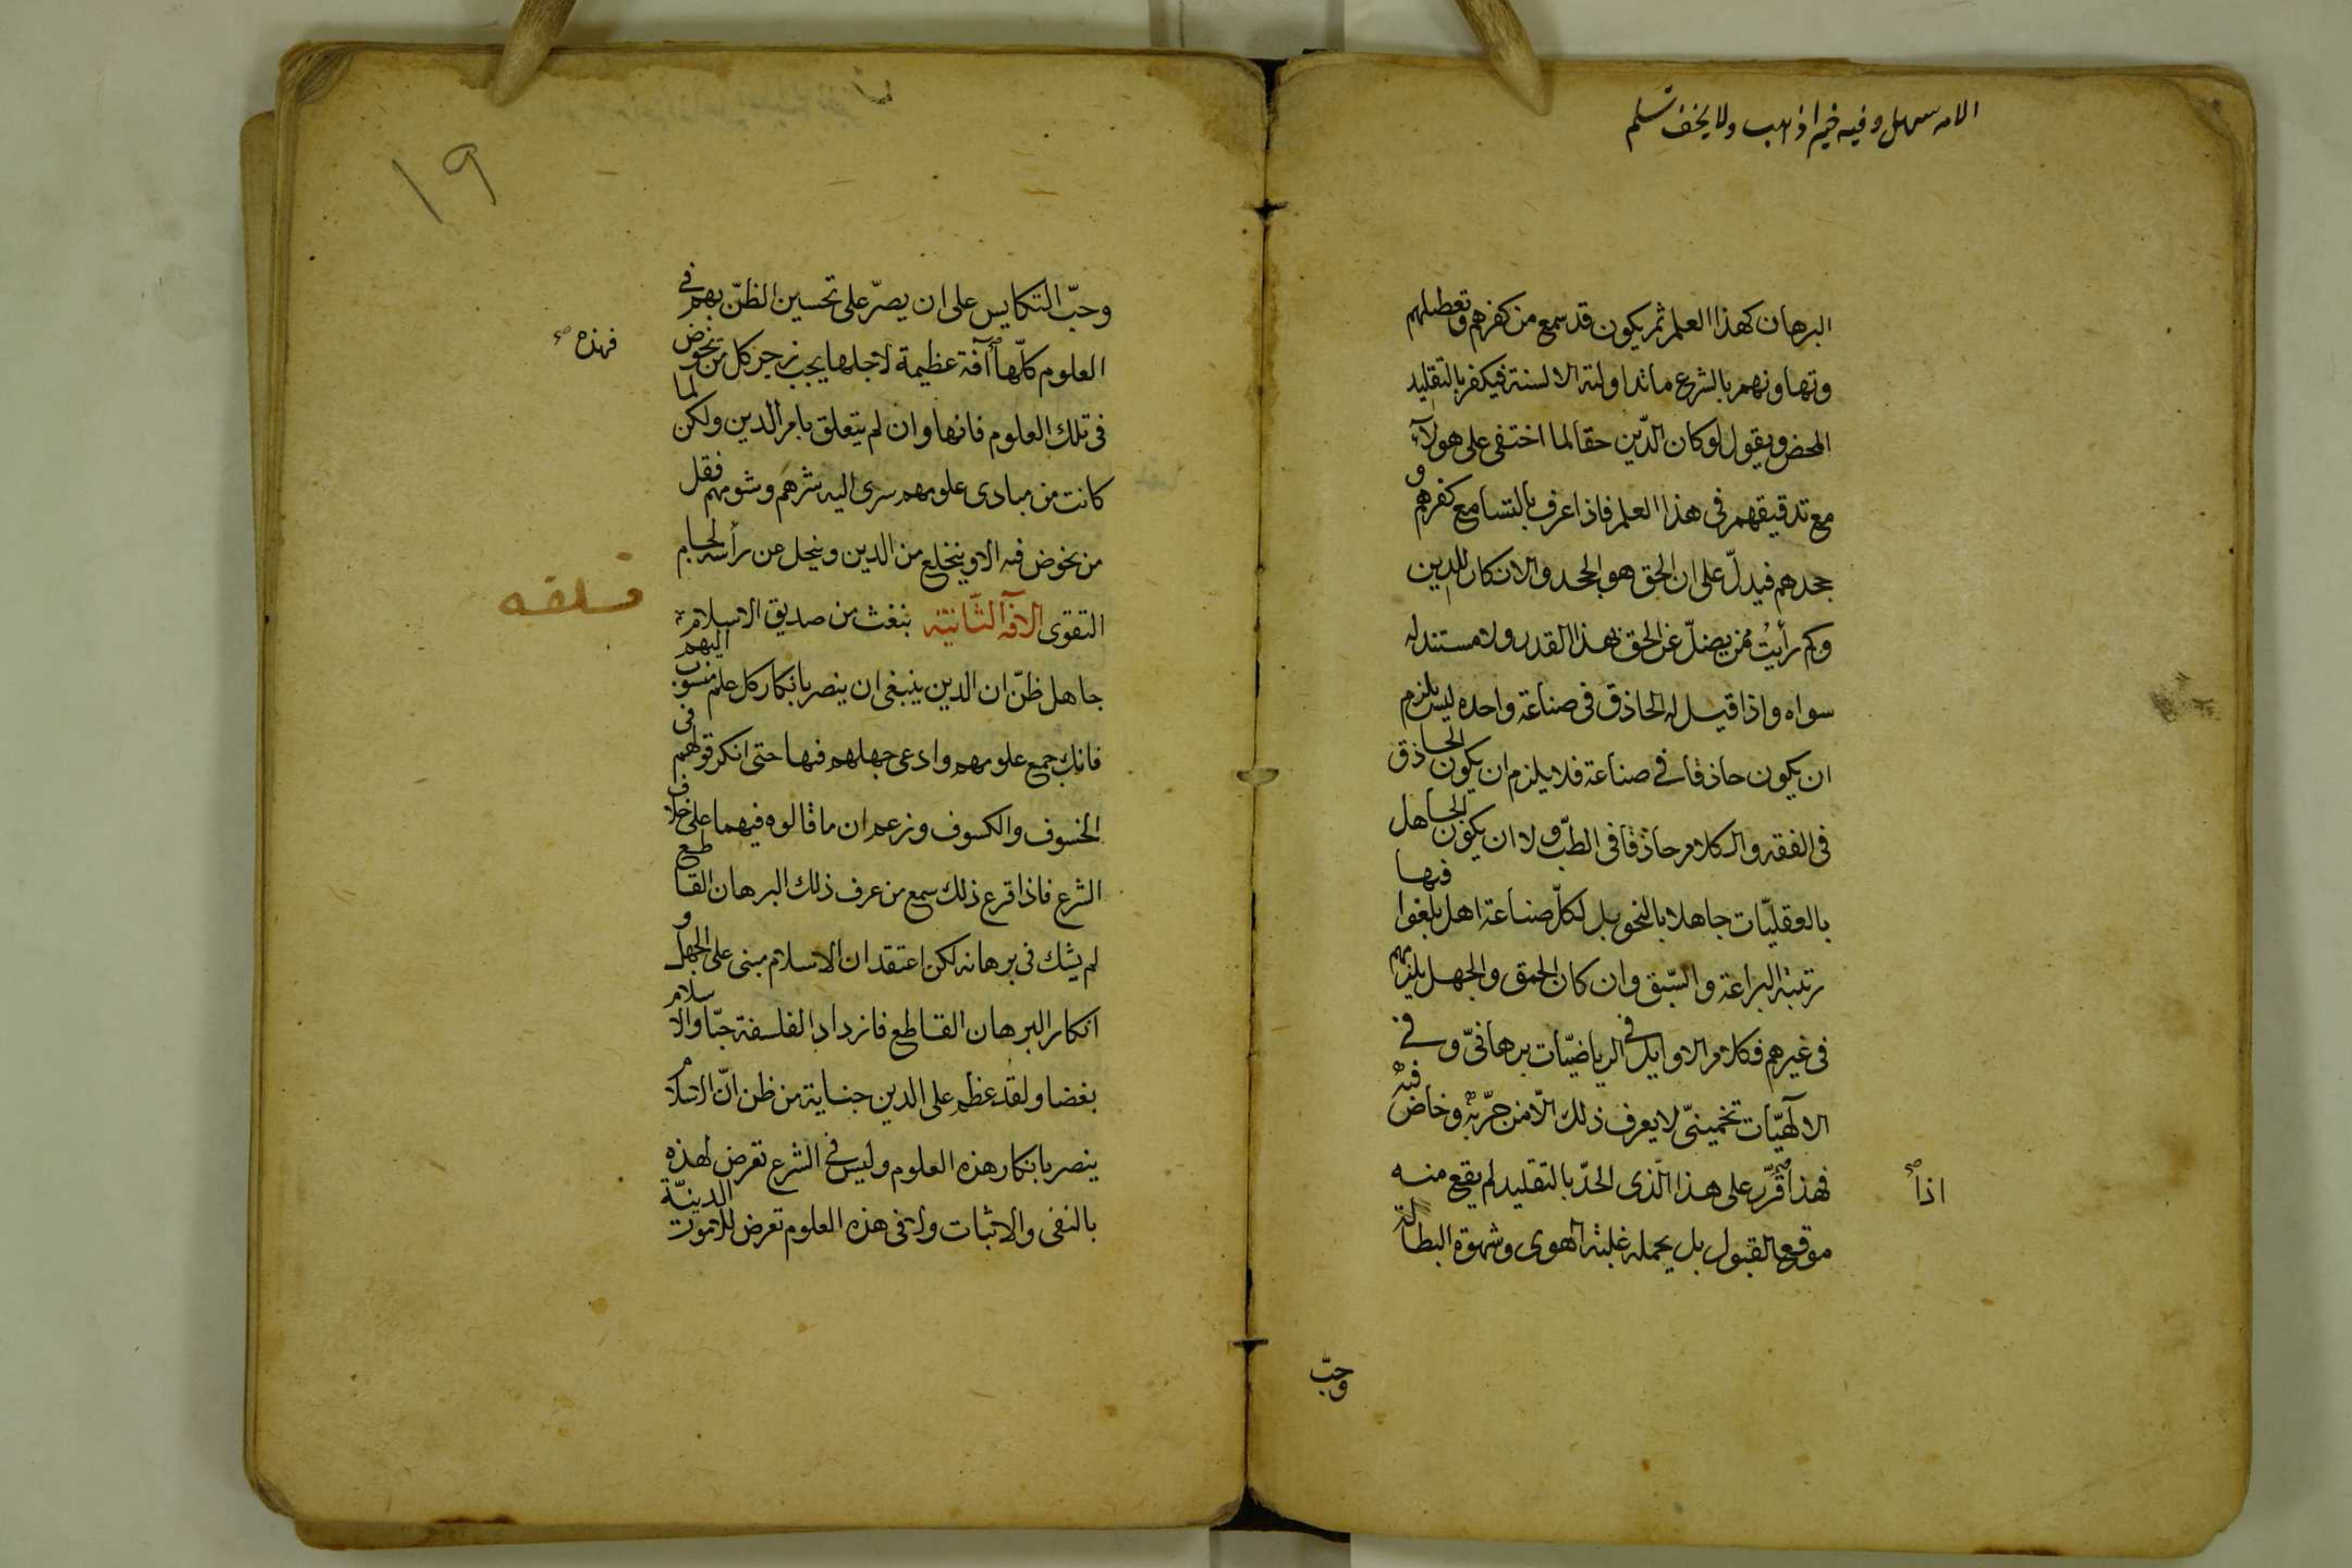 الامر سهل وفيه خير اذهب ولا يخف تسلم
البرهان كهذا العلم ثم يكون قد سمع من كفرهم وتعطيلهم
وتهاونهم بالشرع ما تداولته الالسنة فيكفر بالتقليد
المحض ويقول لو كان الدّين حقا لما اختفى على هولآء
مع تدقيقهم فى هذا العلم فاذا عرف بالتسامع كفرهم و
جحدهم فيدلّ على ان الحق هو الجحد والانكار للدين
وكم رأيت ممن يضلّ عن الحق بهذا القدر ولا مستند له
سواه واذا قيل له الحاذق فى صناعة واحده ليس يلزم
ان يكون حاذقا فى صناعة فلا يلزم ان يكون الحاذق
فى الفقه والكلام حاذقا فى الطبّ ولا ان يكون الجاهل
بالعقليّات جاهلا بالنحو بل لكلّ صناعة اهل بلغوا فيها
رتبة البراعة والسّبق وان كان الحمق والجهل يلزمهم
فى غيرهم فكلام الاوايل فى الرياضيّات برهانىّ وفى
الالهيّات تخمينىّ لا يعرف ذلك الّا من جرّبه وخاض فيه
فهذا قرّر على هذا الّذى الحدّ بالتقليد لم يقع منه
اذا
موقع القبول بل يحمله غلبة الهوى وشهوة البطالة
وحبّ
١٩
وحبّ التكايس على ان يصرّ على تحسين الظنّ بهم فى
العلوم كلّها آفة عظيمة لاجلها يجب زجر كل من نخوض
فهذه
فى تلك العلوم فانها وان لم يتعلق بامر الدين ولكن لما
كانت من مبادى علومهم سرى اليه شرهم وشومهم فقل
من نخوض فيه الا وينخلع من الدين وينحل عن رأسه لجام
التقوى الافة الثّانية بنغث من صديق الاسلام
جاهل ظنّ ان الدين ينبغى ان ينصر بانكار كل علم منسوب اليهم
فانكر جميع علومهم وادعى جهلهم فيها حتى انكر قولهم فى
الخسوف والكسوف وزعم ان ما قالوه فيهما على خلاف
الشرع فاذا قرع ذلك سمع من عرف ذلك البرهان القاطع
لم يشك فى برهانه لكن اعتقد ان الاسلام مبنى على الجهل و
انكار البرهان القاطع فازداد الفلسفة حبّا والاسلام
بغضا ولقد عظم على الدين جناية من ظن انّ الاسلام
ينصر بانكار هذه العلوم وليس فى الشرع تعرض لهذه
بالنفى والاثبات ولا فى هذه العلوم تعرض للامور الدينيّة